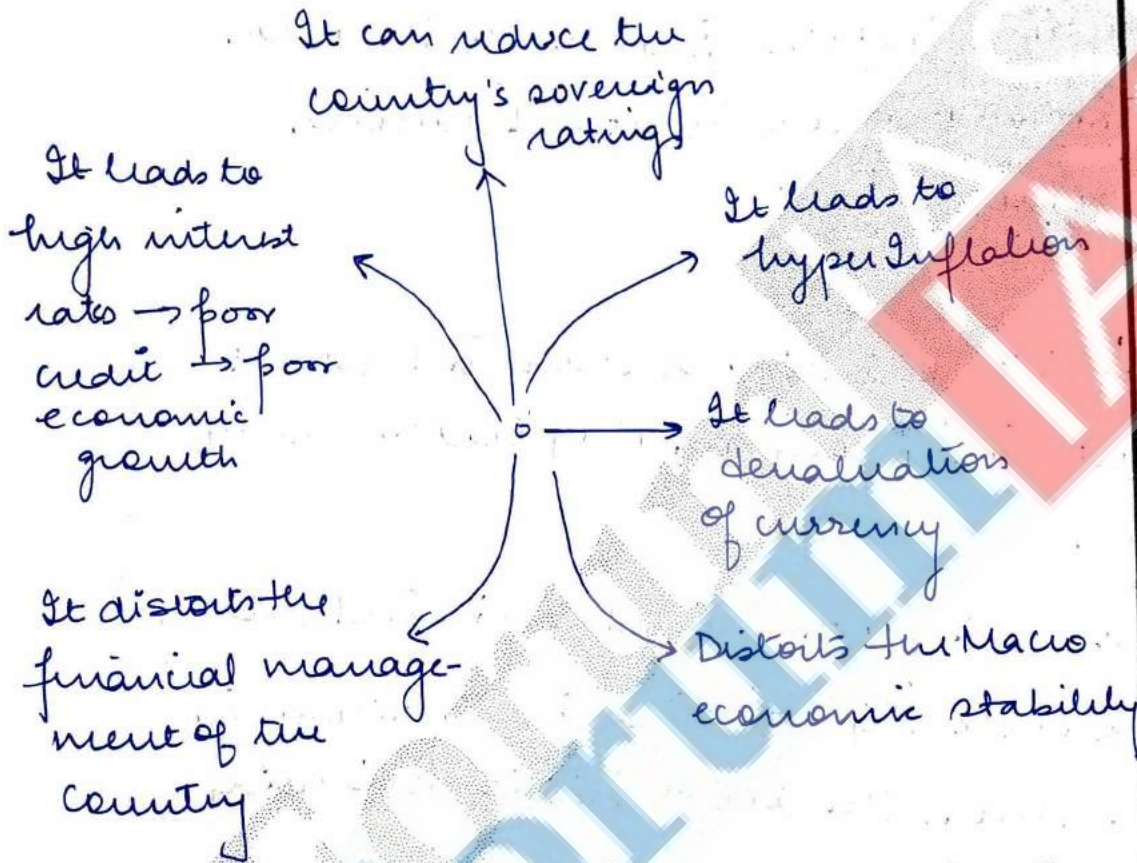 It can reduce the
country's sovereign
ratings
It leads to
high interest
rates → poor
credit → poor
economic
growth
It leads to
hyper Inflation
It leads to
devaluation
of currency
It distorts the
financial manage-
ment of the
country
Distorts the Macro
economic stability
Forum IAS